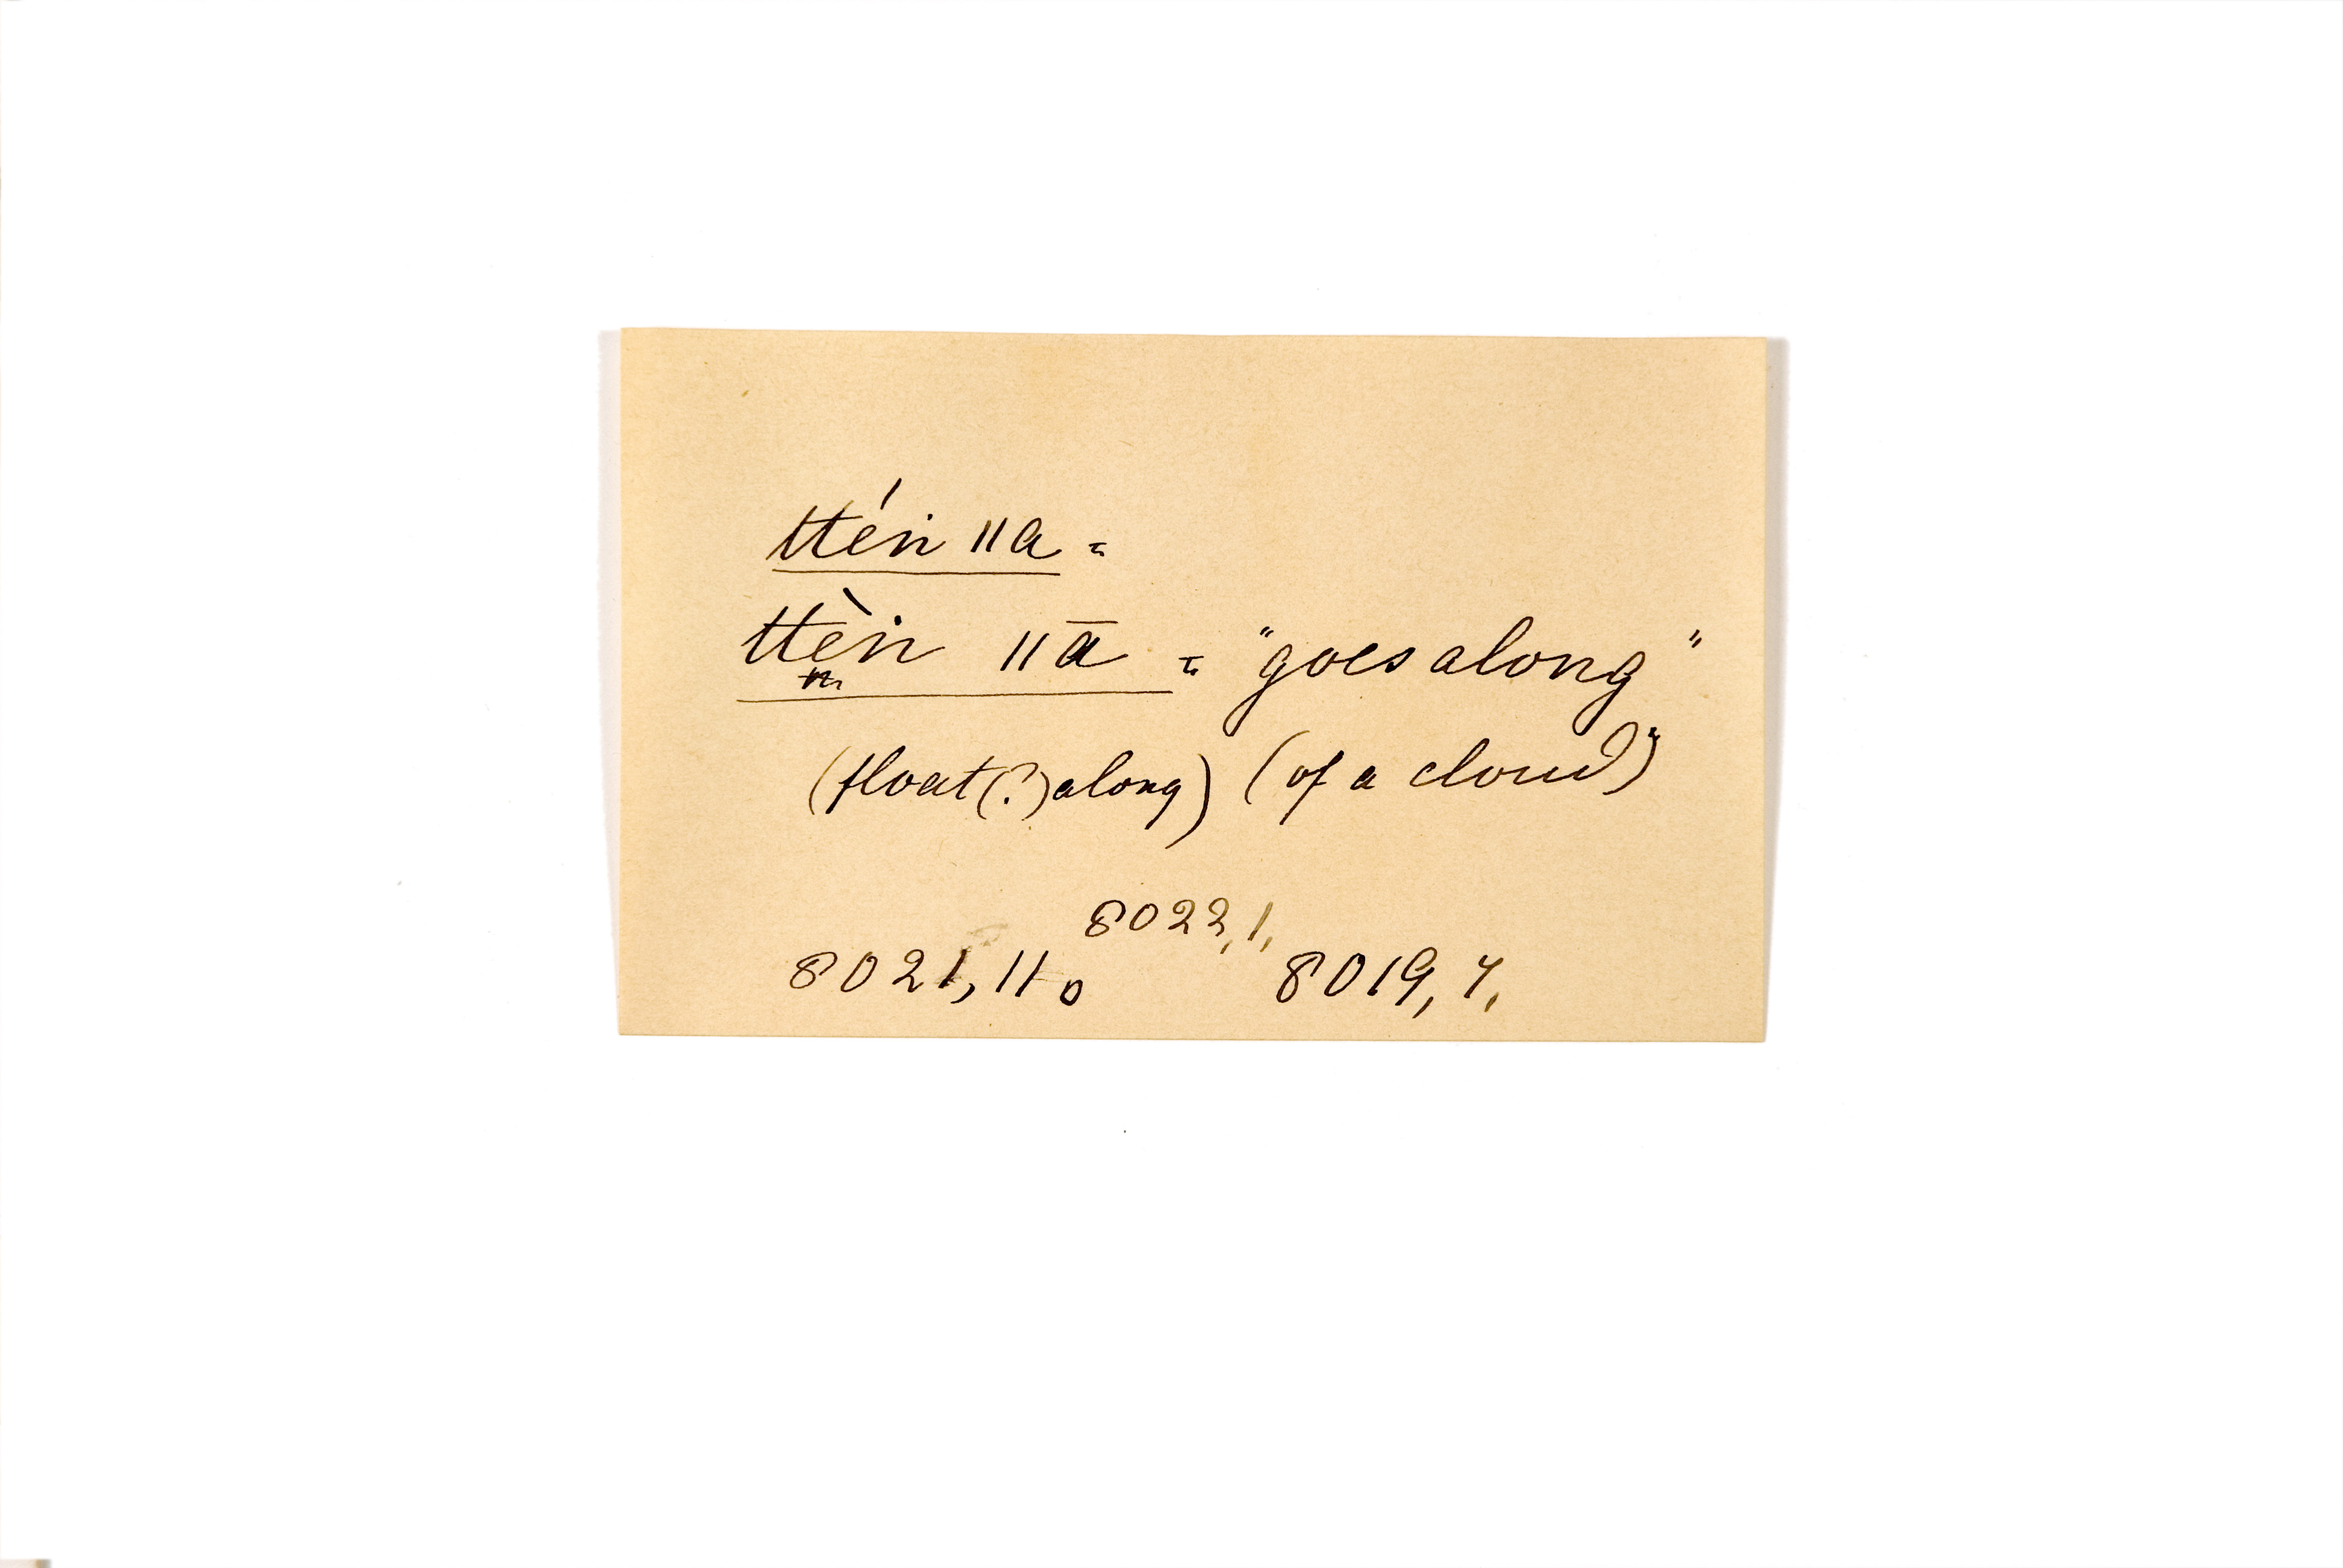 ttén ǁa =
ttèn̄ ǁā = "goes along"
(float(?) along) (of a cloud)
8022,1,
8021,11. 8019,7,